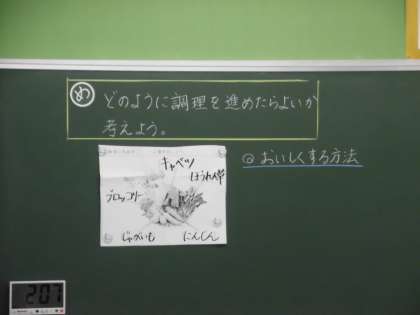 め どのように調理を進めたらよいか
考えよう。
キャベツ
ほうれん草
ブロッコリー
じゃがいも
にんじん
◎おいしくする方法
207